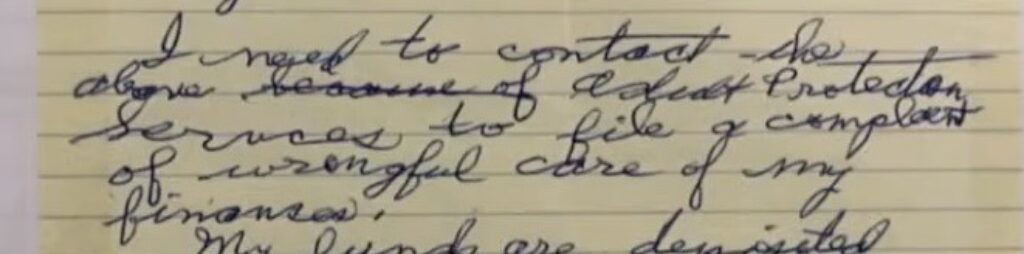 I need to contact the
above because of Adult Protection
Services to file a complaint
of wrongful care of my
finances.
My funds are deposited